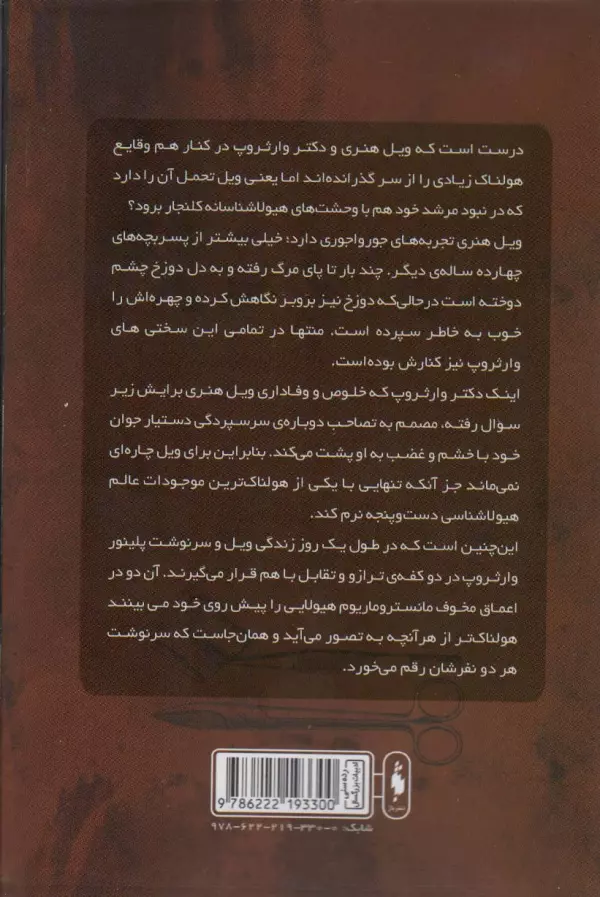 درست است که ویل هنری و دکتر وارثروپ در کنار هم وقایع
هولناک زیادی را از سر گذرانده‌اند اما یعنی ویل تحمل آن را دارد
که در نبود مرشد خود هم با وحشت‌های هیولاشناسانه کلنجار برود؟
ویل هنری تجربه‌های جورواجوری دارد؛ خیلی بیشتر از پسربچه‌های
چهارده ساله‌ی دیگر. چند بار تا پای مرگ رفته و به دل دوزخ چشم
دوخته است درحالی‌که دوزخ نیز بروبر نگاهش کرده و چهره‌اش را
خوب به خاطر سپرده است. منتها در تمامی این سختی های
وارثروپ نیز کنارش بوده‌است.
اینک دکتر وارثروپ که خلوص و وفاداری ویل هنری برایش زیر
سؤال رفته، مصمم به تصاحب دوباره‌ی سرسپردگی دستیار جوان
خود با خشم و غضب به او پشت می‌کند. بنابراین برای ویل چاره‌ای
نمی‌ماند جز آنکه تنهایی با یکی از هولناک‌ترین موجودات عالم
هیولاشناسی دست‌وپنجه نرم کند.
این‌چنین است که در طول یک روز زندگی ویل و سرنوشت پلینور
وارثروپ در دو کفه‌ی ترازو و تقابل با هم قرار می‌گیرند. آن دو در
اعماق مخوف مانستروماریوم هیولایی را پیش روی خود می بینند
هولناک‌تر از هرآنچه به تصور می‌آید و همان‌جاست که سرنوشت
هر دو نفرشان رقم می‌خورد.
رده سنی
ادبیات بزرگسال
9 786222 193300
شابک: ۹۷۸-۶۲۲-۲۱۹-۳۳۰-۰